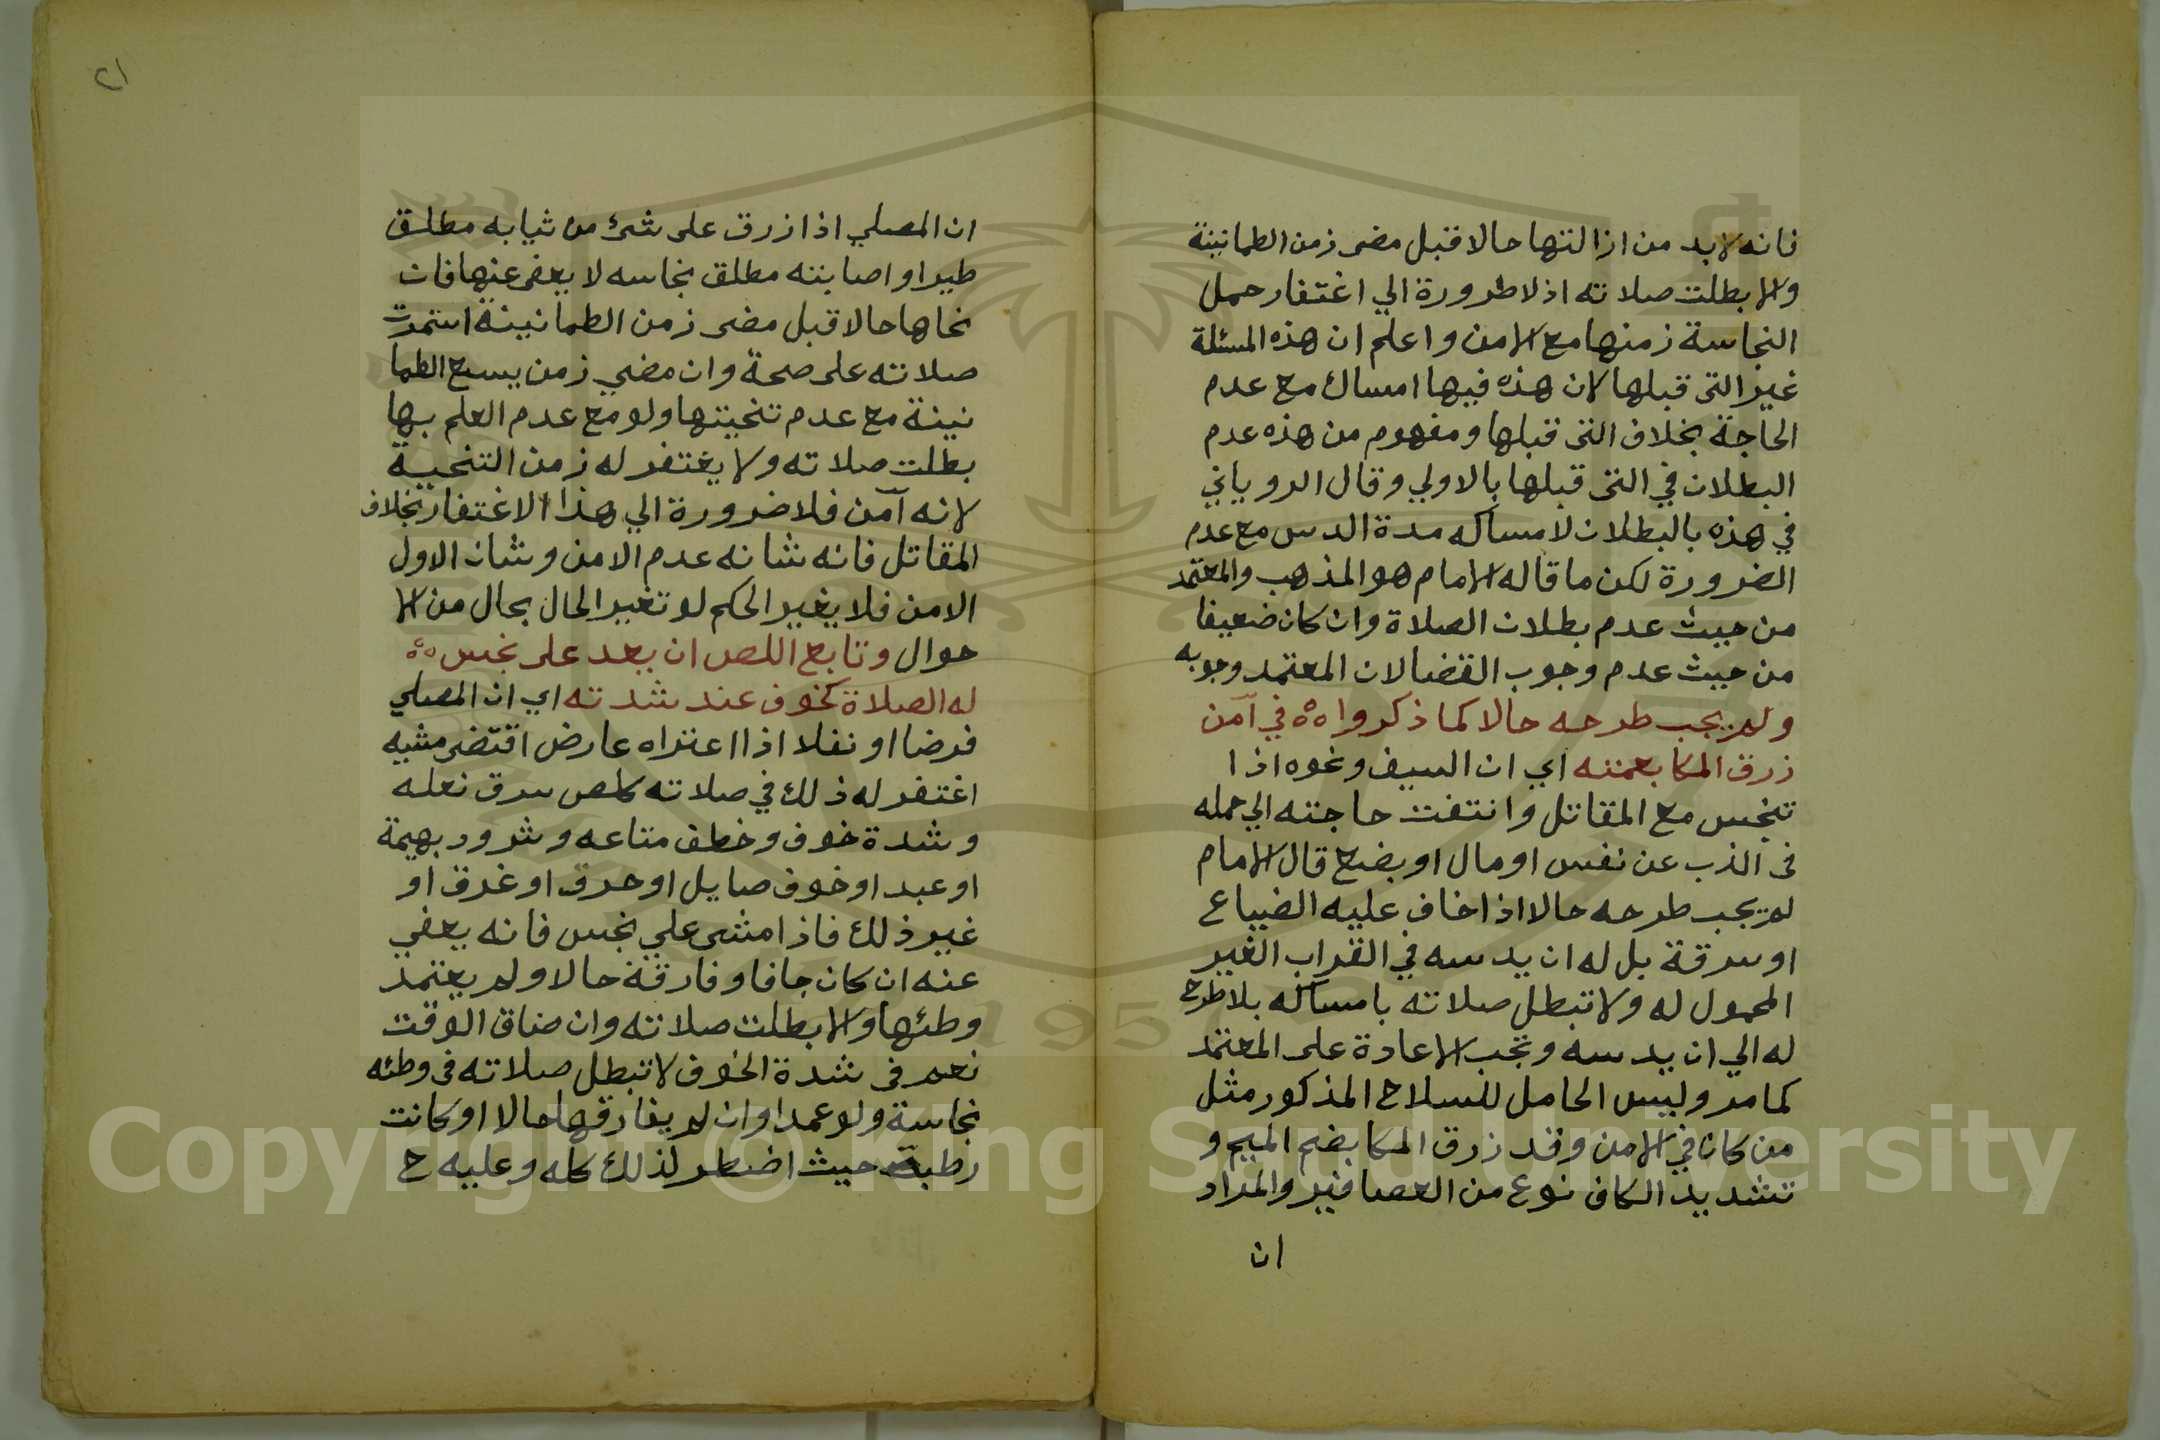 فانه لابد من ازالتها حالا قبل مضى زمن الطمانينة
والا بطلت صلاته اذ لا ضرورة الي اغتفار حمل
النجاسة زمنها مع الامن واعلم ان هذه المسئلة
غير التى قبلها لان هذه فيها امساك مع عدم
الحاجة بخلاف التى قبلها ومفهوم من هذه عدم
البطلان في التى قبلها بالاولي وقال الروياني
في هذه بالبطلان لامساكه مدة الدس مع عدم
الضرورة لكن ما قاله الامام هو المذهب والمعتمد
من حيث عدم بطلان الصلاة وان كان ضعيفا
من حيث عدم وجوب القضا لان المعتمد وجوبه
ولم يجب طرحه حالا كما ذكروا ٥ في آمن
زرق المكا بعمته اي ان السيف ونحوه اذا
تنجس مع المقاتل وانتفت حاجته الي حمله
في الذب عن نفس او مال او بضع قال الامام
لم يجب طرحه حالا اذا خاف عليه الضياع
او سرقة بل له ان يدسه في القراب الغير
المحمول له ولا تبطل صلاته بامساكه بلا طرح
له الي ان يدسه وتجب الاعادة على المعتمد
كما مر وليس الحامل للسلاح المذكور مثل
من كان في الامن وقد زرق المكا بضم الميم و
تشديد الكاف نوع من العصافير والمراد
ان
٢١
ان المصلي اذا زرق على شئ من ثيابه مطلق
طير او اصابته مطلق نجاسه لا يعفى عنها فان
نحاها حالا قبل مضى زمن الطمانينة استمرت
صلاته على صحة وان مضي زمن يسع الطما
نينة مع عدم تنحيتها ولو مع عدم العلم بها
بطلت صلاته ولا يغتفر له زمن التنحية
لانه آمن فلا ضرورة الي هذا الاغتفار بخلاف
المقاتل فانه شانه عدم الامن وشان الاول
الامن فلا يغير الحكم لو تغير الحال بحال من الا
حوال وتابع اللص ان يعد على نجس ٥
له الصلاة كخوف عند شدته اي ان المصلي
فرضا او نفلا اذا اعتراه عارض اقتضى مشيه
اغتفر له ذلك في صلاته كلص سرق نعله
وشدة خوف وخطف متاعه وشرود بهيمة
او عبد او خوف صايل او حرق او غرق او
غير ذلك فاذا مشى علي نجس فانه يعفي
عنه ان كان جافا وفارقة حالا ولم يعتمد
وطئها والا بطلت صلاته وان ضاق الوقت
نعم في شدة الخوف لا تبطل صلاته في وطئه
نجاسة ولو عمدا وان لم يفارقها حالا او كانت
رطبة حيث اضطر لذلك كله وعليه ح
Copyright © King Saud University